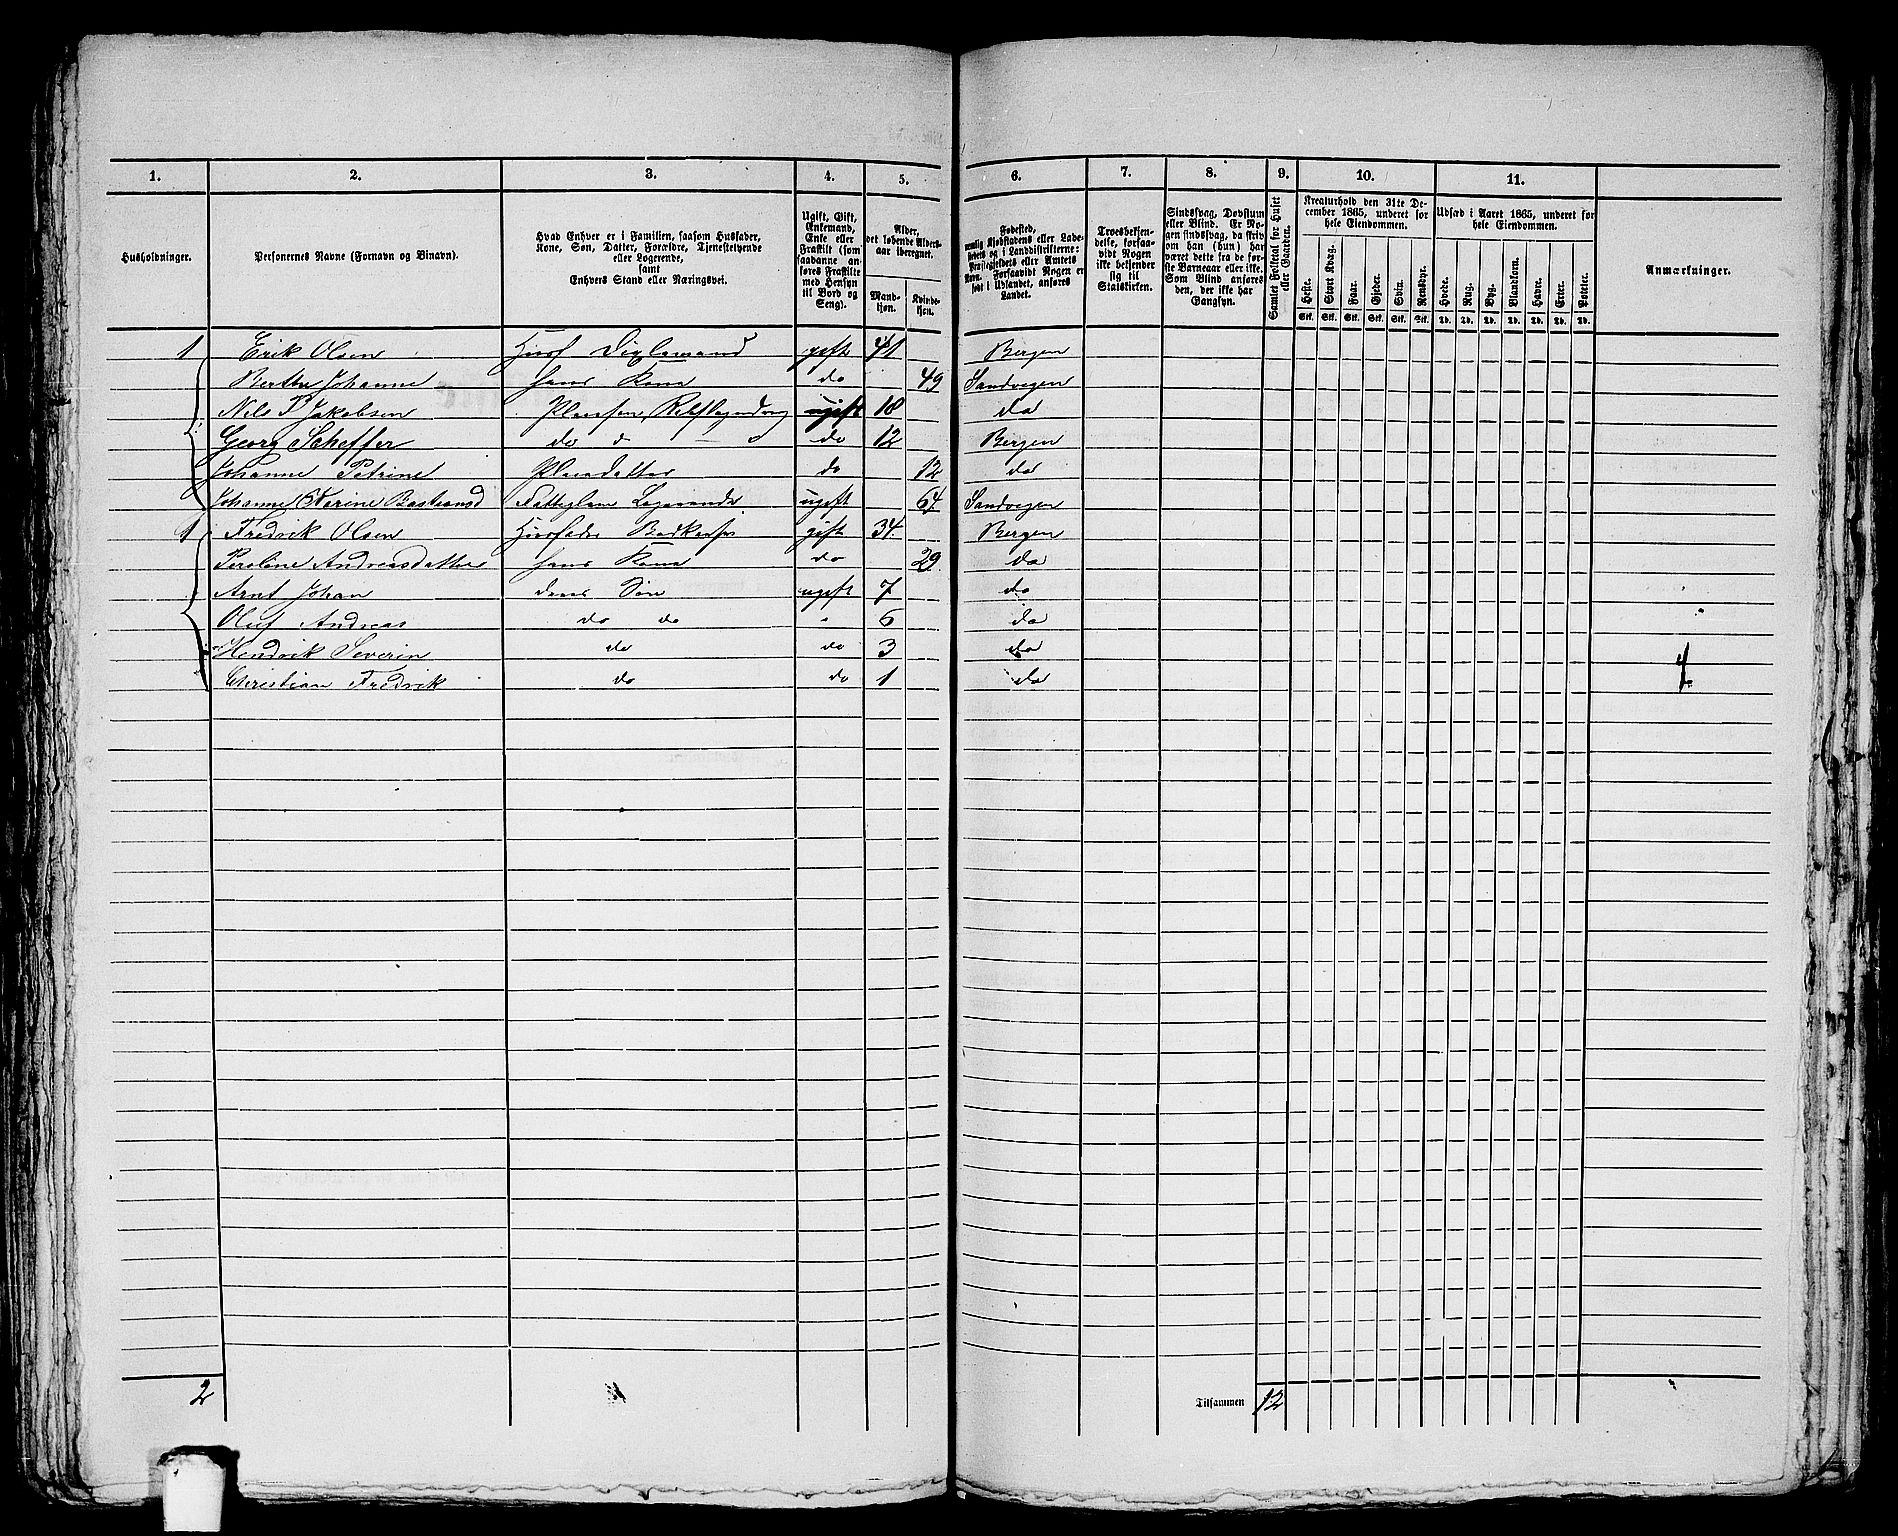 1. 2. 3. 4. 5. 6. 7. 8. 9. 10. 11.
Husholdninger.
Personernes Navne (Fornavn og Binavn).
Hvad Enhver er i Familien, saasom Husfader,
Kone, Søn, Datter, Forældre, Tjenestetyende
eller Logerende,
samt
Enhvers Stand eller Næringsvei.
Ugift, Gift,
Enkemand,
Enke eller
Fraskilt (som
saadanne an-
føres Fraskilte
med Hensyn
til Bord og
Seng).
Alder,
det løbende Alders-
aar iberegnet.
Mand-
kjøn.
Kvinde-
kjøn.
Fødested,
nemlig Kjøbstadens eller Lade-
stedets og i Landdistrikterne:
Præstegjeldets eller Amtets
Navn. Forsaavidt Nogen er
født i Udlandet, anføres
Landet.
Troesbekjen-
delse, forsaa-
vidt Nogen
ikke bekjender
sig til
Statskirken.
Sindssvag, Døvstum
eller Blind. Er No-
gen sindssvag, da skriv
om han (hun) har
været dette fra de før-
ste Barneaar eller ikke.
Som Blind anføres
den, der ikke har
Gangsyn.
Samlet Folketal for Huset
eller Gaarden.
Kreaturhold den 31te De-
cember 1865, underet for
hele Eiendommen.
Heste. Stort Kvæg. Faar. Gjeder. Svin. Rensdyr.
Stk. Stk. Stk. Stk. Stk. Stk.
Udsæd i Aaret 1865, underet for
hele Eiendommen.
Hvede. Rug. Byg. Blandkorn. Havre. Erter. Poteter.
Td. Td. Td. Td. Td. Td. Td.
Anmærkninger.
1 Erik Olsen Husf Diglemand gift 41 Bergen
Berthe Johanne hans Kone do 49 Sandvigen
Nils P Jakobsen Pleiesøn, ugift 18 do
Georg Scheffer do do 12 Bergen
Johanne Petrine Pleiedatter do 12 do
Johanne Karine Bastiansd Fattiglem Logerende ugift 64 Sandvigen
1 Fredrik Olsen Husfader gift 34 Bergen
Andreasdatter hans Kone do 29 do
Arnt Johan deres Søn ugift 7 do
Oluf Andreas do do 6 do
Hendrik Severin do do 3 do
Christian Fredrik do do 1 do 4
2 Tilsammen 12